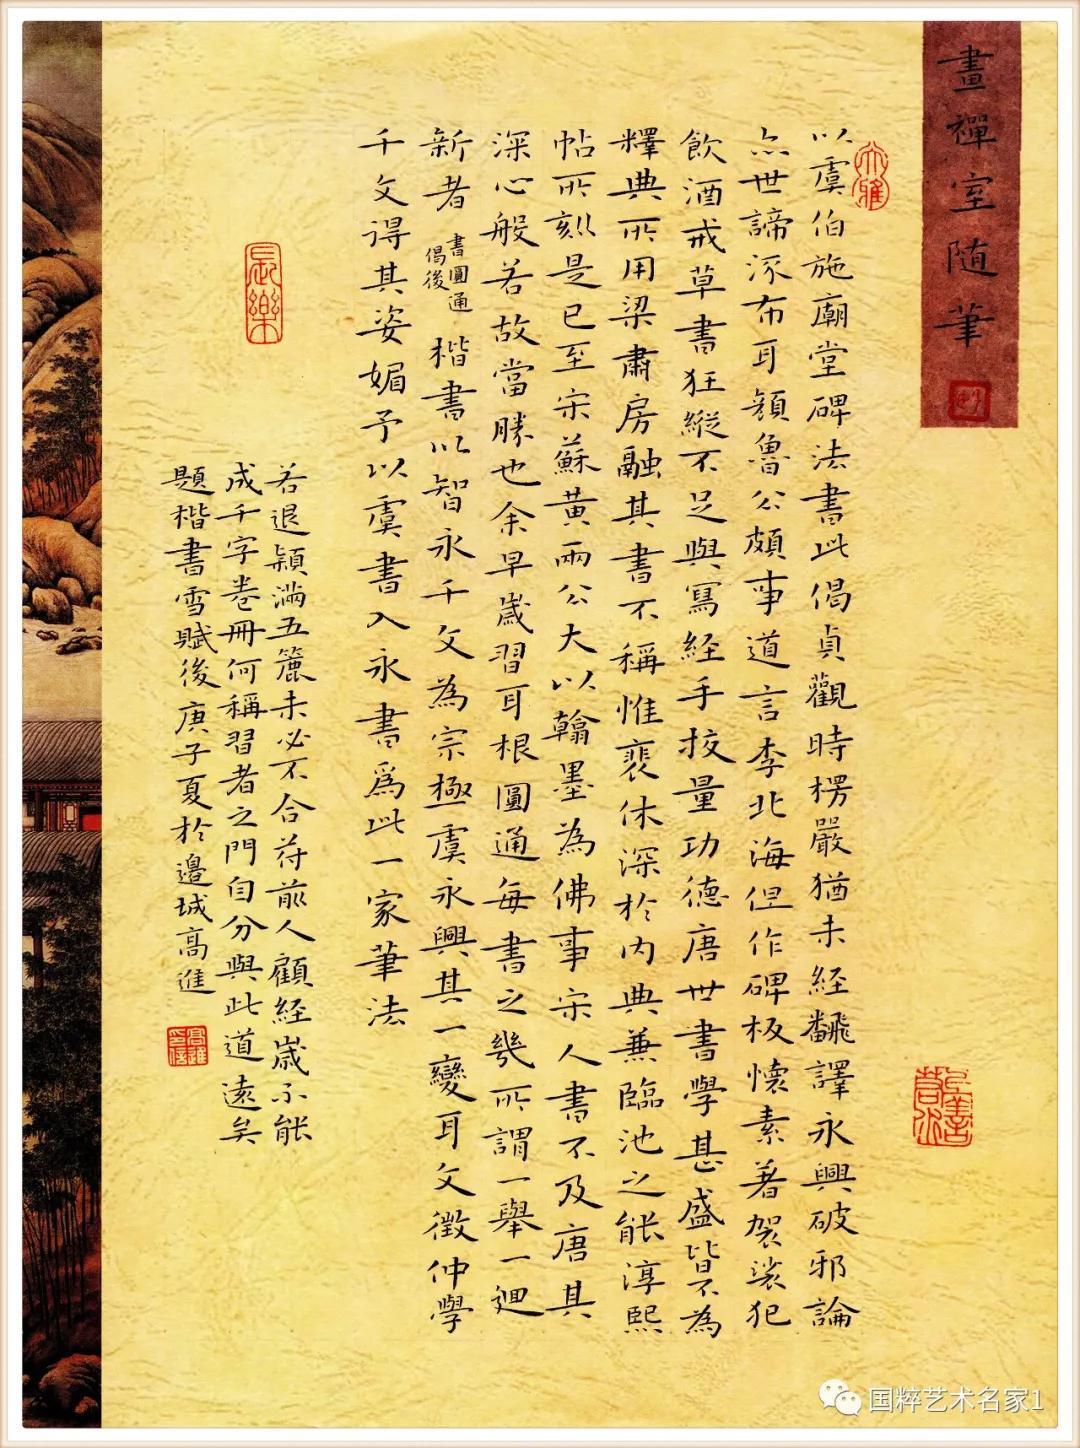 畫禪室随筆
大雅
以虞伯施廟堂碑法書此偈貞觀時楞嚴猶未經飜譯永興破邪論
亦世諦流布耳顔魯公頗事道言李北海但作碑板懷素著袈裟犯
飲酒戒草書狂縱不足與寫經手挍量功德唐世書學甚盛皆不為
釋典所用梁肅房融其書不稱惟裴休深於内典兼臨池之能淳熙
帖所刻是已至宋蘇黄兩公大以翰墨為佛事宋人書不及唐其
深心般若故當勝也余早歲習耳根圓通每書之幾所謂一舉一迴
新者書圓通偈後楷書以智永千文為宗極虞永興其一變耳文徵仲學
千文得其姿媚予以虞書入永書爲此一家筆法
長樂
若退穎滿五簏未必不合符前人顧經歲不能
成千字卷冊何稱習者之門自分與此道遠矣
題楷書雪賦後庚子夏於邊城高進
高進印信
上善若水
国粹艺术名家1